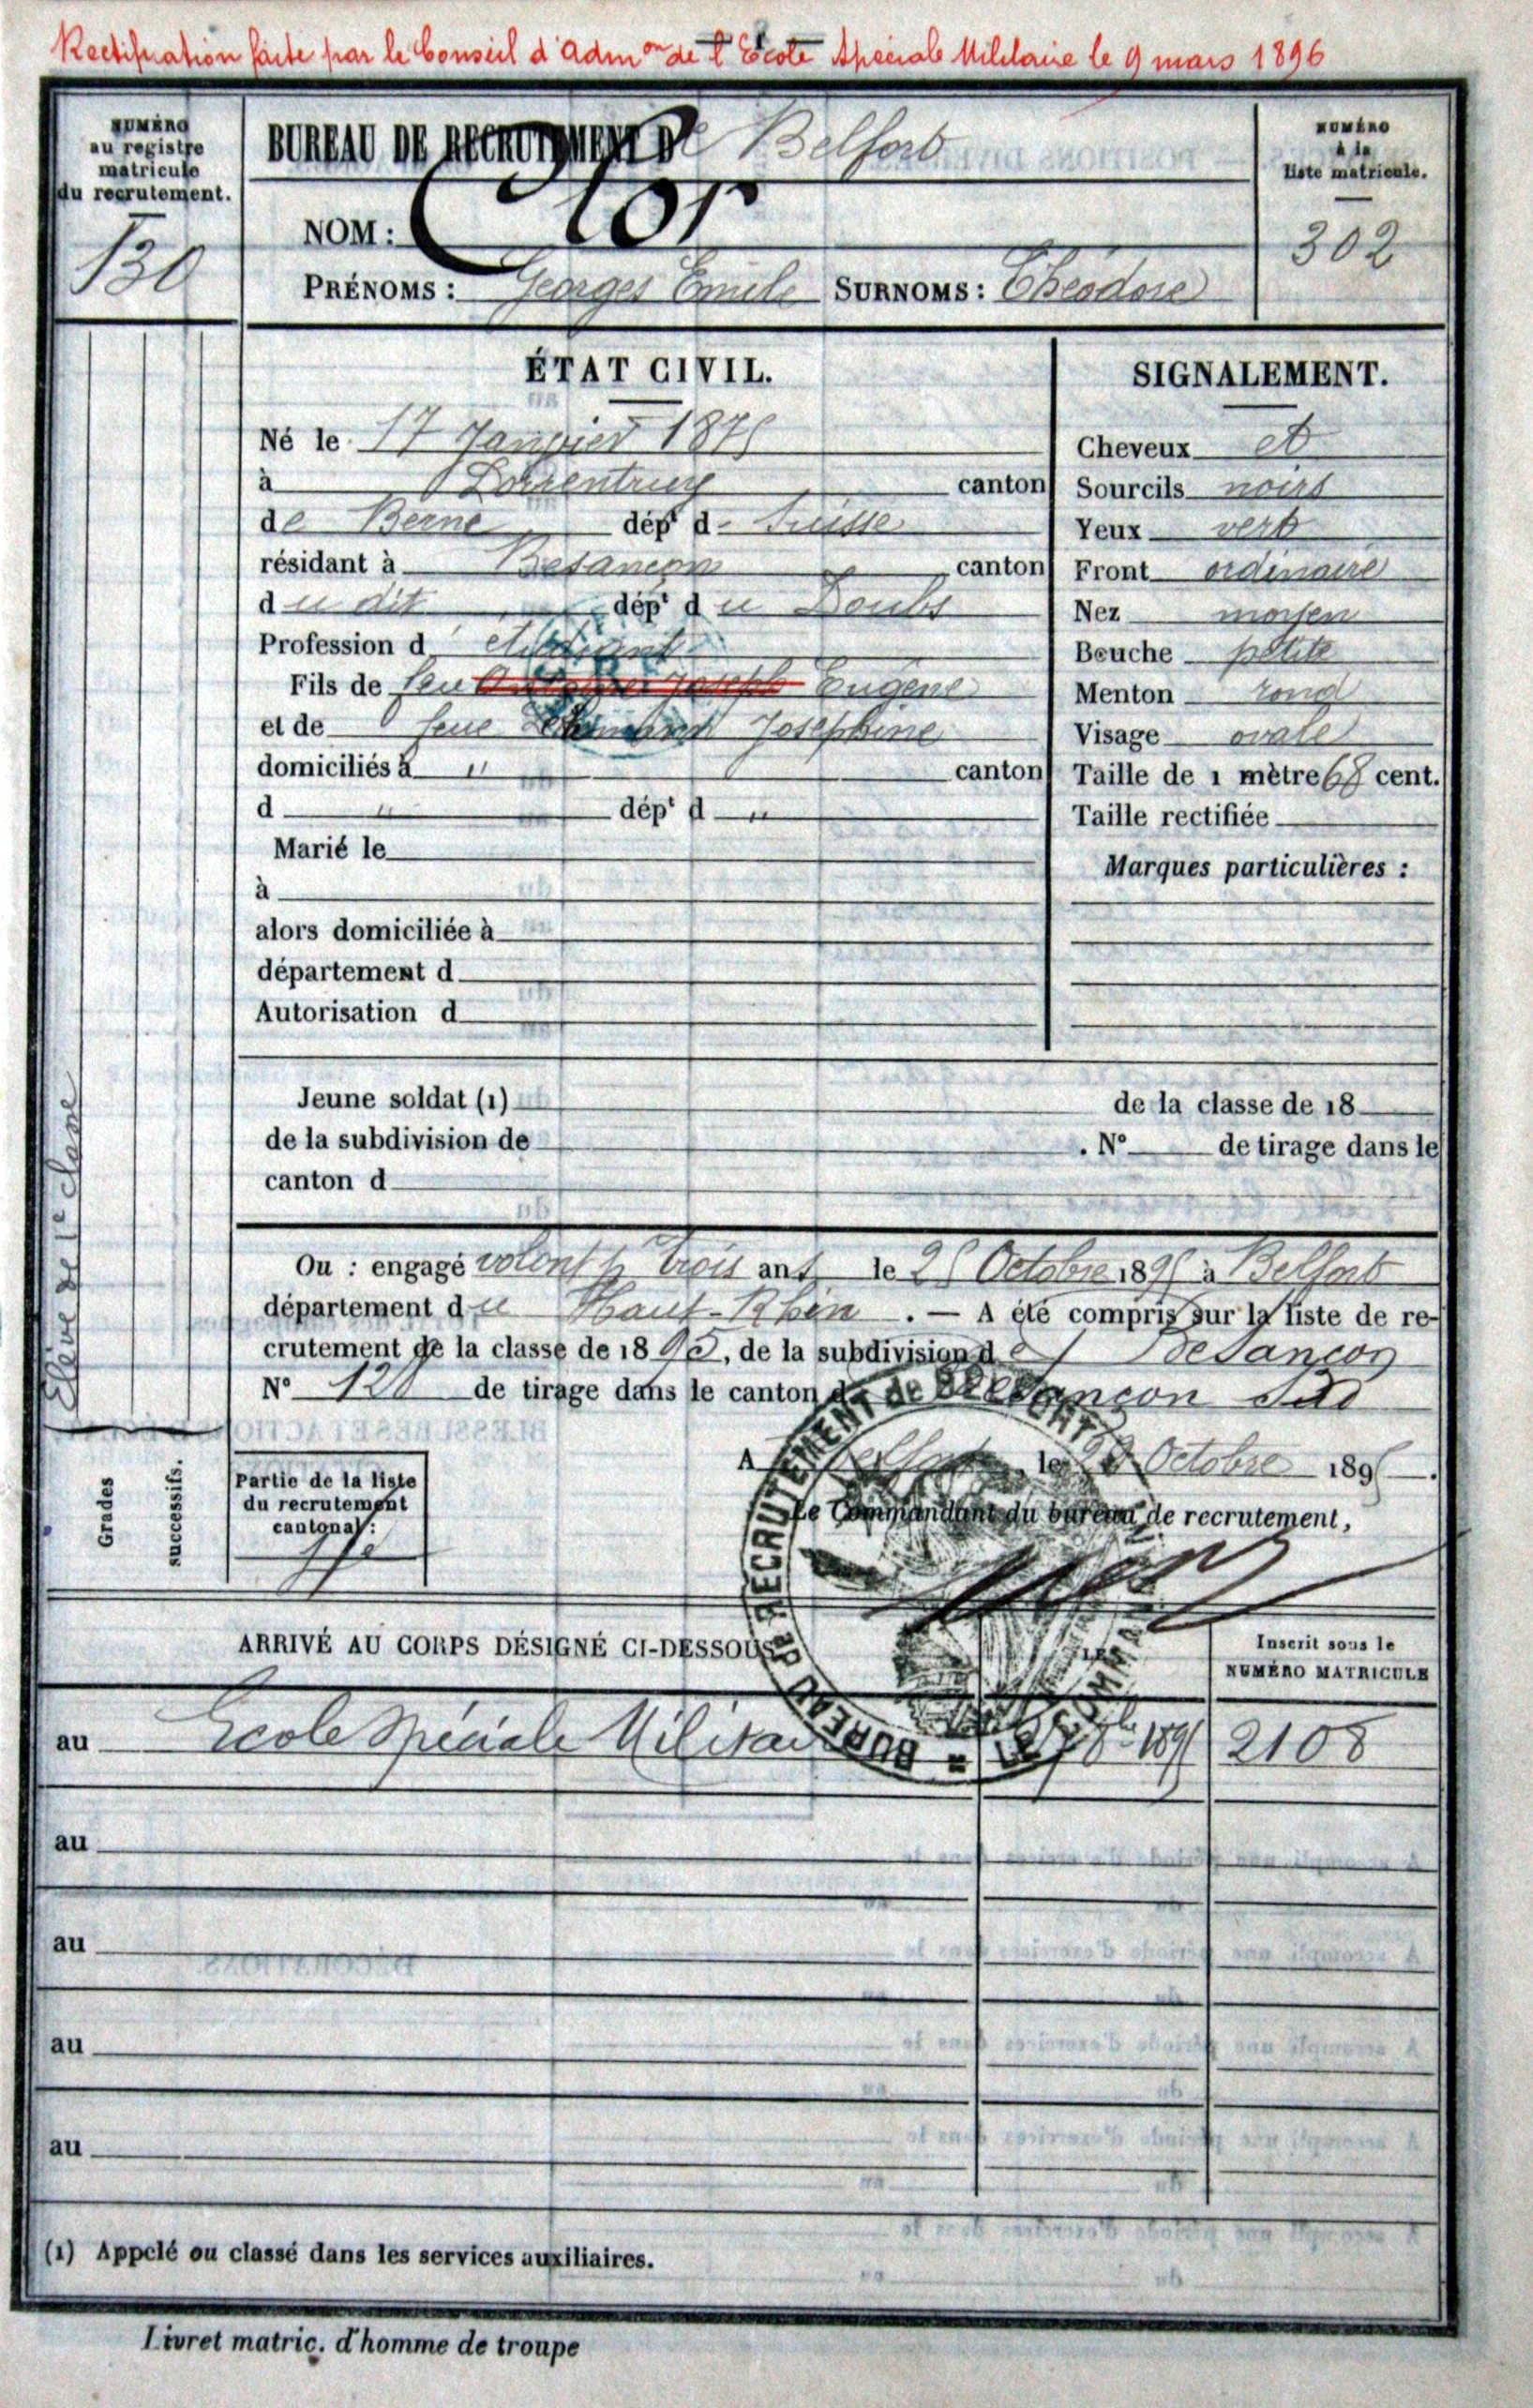 Rectification faite par le Conseil d'Admon de l'Ecole Spéciale Militaire le 9 mars 1896
NUMÉRO
au registre
matricule
du recrutement.
130
BUREAU DE RECRUTEMENT DE Belfort
NUMÉRO
à la
liste matricule.
302
NOM : Clor
PRÉNOMS : Georges Emile SURNOMS : Théodore
ÉTAT CIVIL.
Né le 17 Janvier 187
à Porrentruy canton
de Berne dépt d Suisse
résidant à Besançon canton
du dit dépt du Doubs
Profession d' étudiant
Fils de feu Joseph Eugène
et de feue Joséphine
domiciliés à " canton
d " dépt d "
Marié le
à
alors domiciliée à
département d
Autorisation d
SIGNALEMENT.
Cheveux et
Sourcils noirs
Yeux verts
Front ordinaire
Nez moyen
Bouche petite
Menton rond
Visage ovale
Taille de 1 mètre 68 cent.
Taille rectifiée
Marques particulières :
Jeune soldat (1) de la classe de 18
de la subdivision de . N° de tirage dans le
canton d
Ou : engagé volont pr trois ans le 2 Octobre 189 à Belfort
département du Haut-Rhin . — A été compris sur la liste de re-
crutement de la classe de 189 , de la subdivision de Besançon
N° 120 de tirage dans le canton de Besançon Sud
A Belfort, le Octobre 189 .
Le Commandant du bureau de recrutement,
BUREAU DE RECRUTEMENT de BELFORT
LE COMMANDANT
Elève de 1e classe
Grades
successifs.
Partie de la liste
du recrutement
cantonal :
ARRIVÉ AU CORPS DÉSIGNÉ CI-DESSOUS
Inscrit sous le
NUMÉRO MATRICULE
au Ecole Spéciale Militaire 8bre 189 2108
au
au
au
au
(1) Appelé ou classé dans les services auxiliaires.
Livret matric. d'homme de troupe